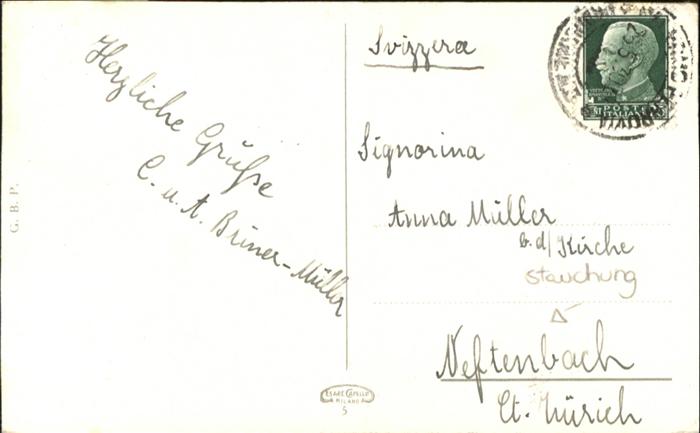 Herzliche Grüße
C. u. A. Briner-Müller
G. B. P.
Svizzera
Signorina
Anna Müller
b. d/ Kirche
Stauchung
Neftenbach
Ct. Zürich
POSTE
ITALIANE
CESARE CAPELLO
MILANO
5